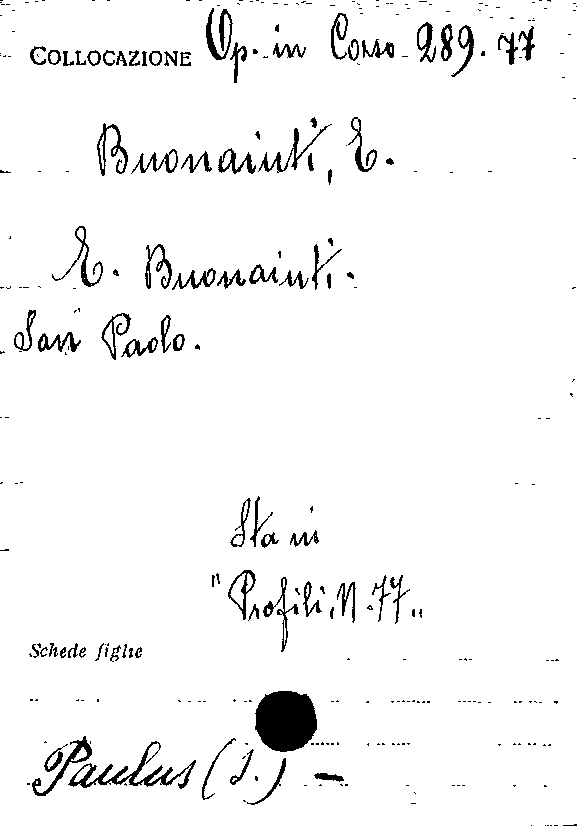 COLLOCAZIONE Op. in Corso 289.77
Buonaiuti, E.
E. Buonaiuti.
San Paolo.
Sta in
"Profili, N. 77"
Schede figlie
Paulus (S.) —